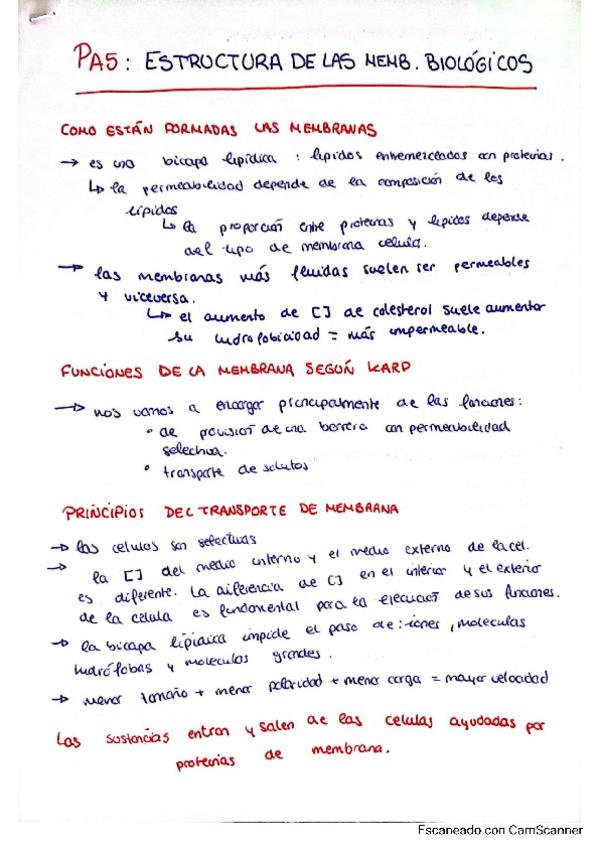 PA5: ESTRUCTURA DE LAS MEMB. BIOLÓGICOS
COMO ESTÁN FORMADAS LAS MEMBRANAS
→ es una bicapa lipídica : lípidos entremezclados con proteínas.
↳ la permeabilidad depende de la composición de los
lípidos
↳ la proporción entre proteínas y lípidos depende
del tipo de membrana celular.
→ las membranas más fluidas suelen ser permeables
y viceversa.
↳ el aumento de [] de colesterol suele aumentar
su hidrofobicidad = más impermeable.
FUNCIONES DE LA MEMBRANA SEGÚN KARP
→ nos vamos a encargar principalmente de las funciones:
• de provisión de una barrera con permeabilidad
selectiva.
• transporte de solutos
PRINCIPIOS DEL TRANSPORTE DE MEMBRANA
→ las celulas son selectivas
→ la [] del medio interno y el medio externo de la cel.
es diferente. La diferencia de [] en el interior y el exterior
de la célula es fundamental para la ejecución de sus funciones.
→ la bicapa lipídica impide el paso de: iones, moleculas
hidrófobas y moleculas grandes.
→ menor tamaño + menor polaridad + menor carga = mayor velocidad
Las sustancias entran y salen de las celulas ayudadas por
proteínas de membrana.
Escaneado con CamScanner